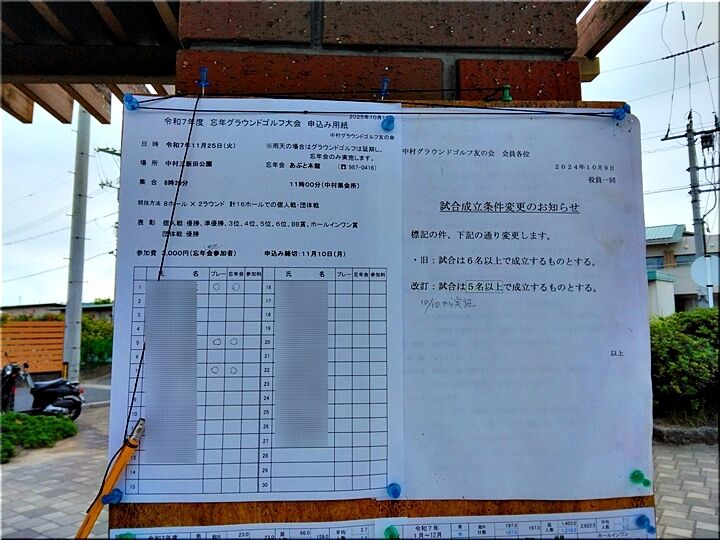 2025年10月
令和7年度 忘年グラウンドゴルフ大会 申込み用紙
中村グラウンドゴルフ友の会
日 時 令和7年11月25日(火) ※雨天の場合はグラウンドゴルフは延期し、
忘年会のみ実施します。
場 所 中村三新田公園 忘年会 あぶと本館 (☎ 987-0416)
集 合 8時20分 11時00分(中村集会所)
競技方法 8ホール × 2ラウンド 計16ホールでの個人戦・団体戦
表 彰 個人戦 優勝、準優勝、3位、4位、5位、6位、BB賞、ホールインワン賞
団体戦 優勝
参加費 3,000円(忘年会参加者) 申込み締切:11月10日(月)
氏 名 プレー 忘年会 参加料 氏 名 プレー 忘年会 参加料
1 ○ ○ 16
5 ○ ○ 20
6 21
7 ○ ○ 22
8 23
9 24
10 25
26
27
13 28
14 29
15 30
中村グラウンドゴルフ友の会 会員各位
2024年10月9日
役員一同
試合成立条件変更のお知らせ
標記の件、下記の通り変更します。
・旧:試合は6名以上で成立するものとする。
改訂:試合は5名以上で成立するものとする。
10/10から実施
以上
令和7年 23.0 延 86.0 159.0 平均 3.7
令和7年 197.0 197.0 延 1,403.0 2,622.5 平均 7.1
1月~12月 日数 197.0 人数 人数 ホールインワン